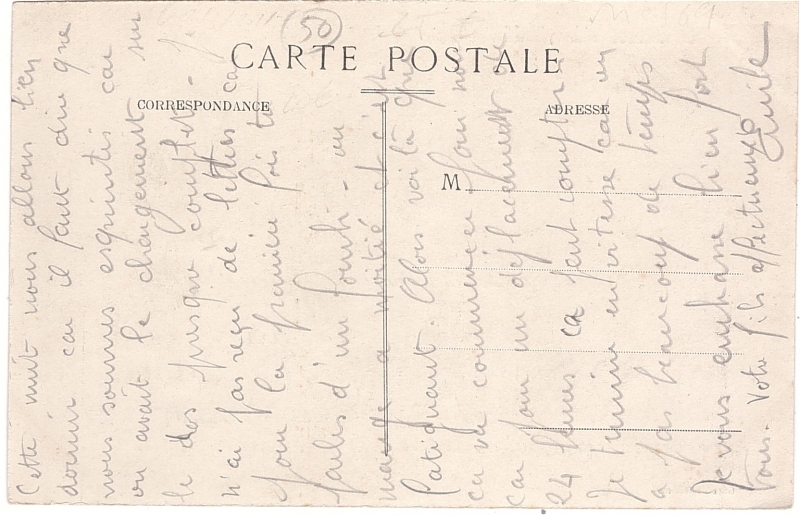 (50)
CARTE POSTALE
CORRESPONDANCE
ADRESSE
M
Cette nuit nous allons bien
dormir car il faut dire que
nous sommes esquintés car
on avait le chargement sur
le dos presque complet -
n'ai pas reçu de lettres ca
pour la première fois tu
parles d'un fourbi - on
mange a moitié et c'est
fatiguant. Alors voilà que
ça va commencer pour
car pour un déplacement
24 heures ca peut compter
Je termine en vitesse car on
a pas beaucoup de temps
Je vous embrasse bien fort
tous. Votre fils affectueux
Emile